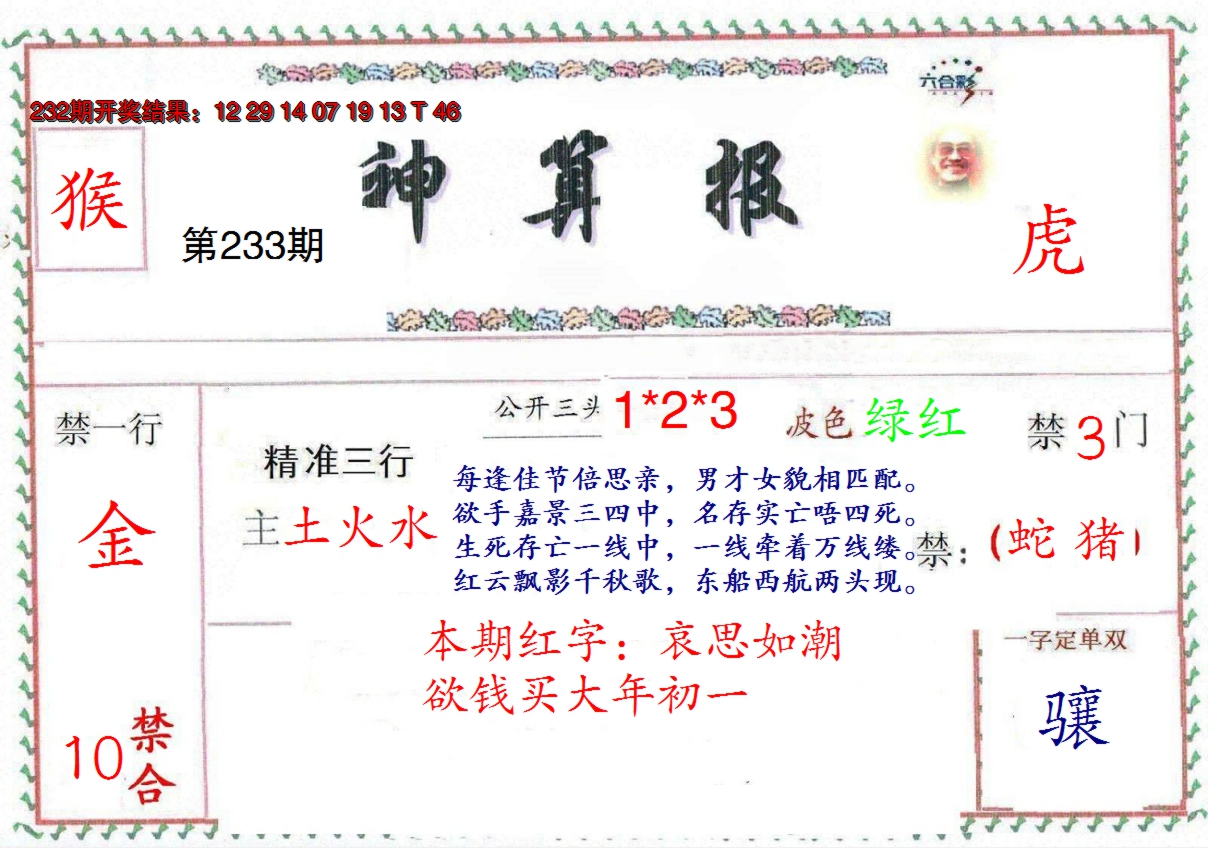 六合彩
232期开奖结果：12 29 14 07 19 13 T 46
神算报
猴
第233期
虎
公开三头 1*2*3
波色 绿红
禁一行
禁3门
精准三行
主土火水
金
每逢佳节倍思亲，男才女貌相匹配。
欲手嘉景三四中，名存实亡唔四死。
生死存亡一线中，一线牵着万线缕。
红云飘影千秋歌，东船西航两头现。
禁：（蛇 猪）
本期红字：哀思如潮
欲钱买大年初一
一字定单双
骧
10禁合